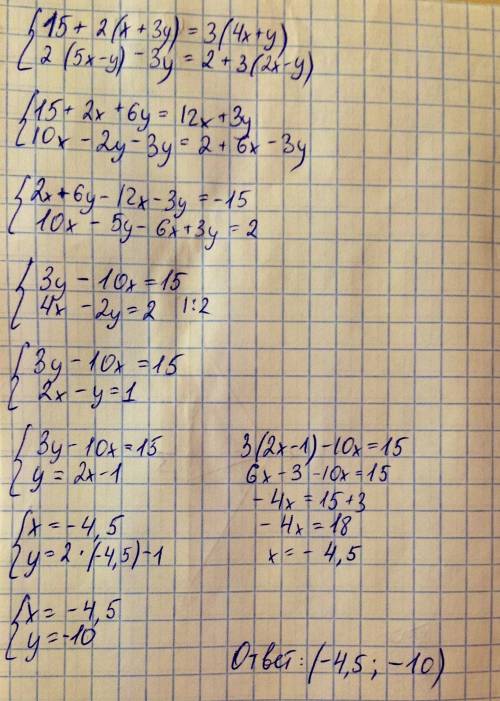 15 + 2(x + 3y) = 3(4x+y)
2(5x-y) - 3y = 2 + 3(2x-y)
15 + 2x + 6y = 12x + 3y
10x - 2y - 3y = 2 + 6x - 3y
2x + 6y - 12x - 3y = -15
10x - 5y - 6x + 3y = 2
3y - 10x = 15
4x - 2y = 2 |:2
3y - 10x = 15
2x - y = 1
3y - 10x = 15
y = 2x - 1
3(2x-1) - 10x = 15
6x - 3 - 10x = 15
- 4x = 15 + 3
- 4x = 18
x = - 4,5
x = - 4,5
y = 2 · (-4,5) - 1
x = - 4,5
y = -10
Ответ: (-4,5; -10)